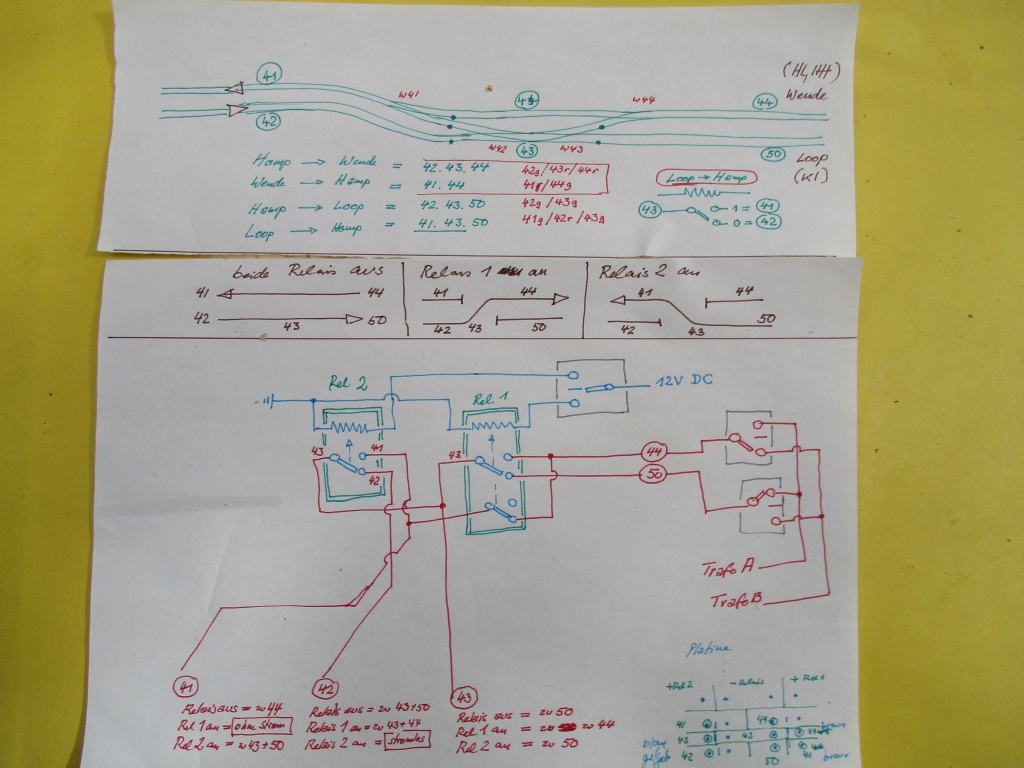 41
(Hl, HH)
w41
44
w44
44
Wende
42
w42
43
w43
50
Loop
(K1)
Hamp → Wende = 42.43.44 42g/43r/44r
Wende → Hamp = 41.44 41g/44g
Hamp → Loop = 42.43.50 42g/43g
Loop → Hamp = 41.43.50 41g/42r/43g
Loop → Hamp
43
1 = 41
0 = 42
beide Relais aus
41 44
42 43 50
Relais 1 an
41 44
42 43 50
Relais 2 an
41 44
42 43 50
Rel 2
Rel. 1
12V DC
43 41
42
43
44
50
Trafo A
Trafo B
41
Relais aus = zu 44
Rel 1 an = ohne Strom
Rel 2 an = zu 43+50
42
Relais aus = zu 43+50
Relais 1 an = zu 43+44
Relais 2 an = stromlos
43
Relais aus = zu 50
Rel 1 an = zu 44
Rel 2 an = zu 50
Platine
+Rel 2 - Relais + Rel 1
41 44 braun
43 43
42 50 41 braun